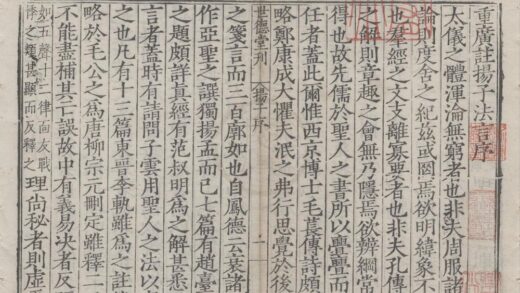 重廣註揚子法言序
太儀之體渾淪無窮者也非夫周服諸
論則度舍之紀茲或罔焉欲明緯象不
也羣經之文支離寡要者也非夫孔傳
之解則章趣之會無乃隱焉欲辨綱常
得也故先儒於聖人之書所以亹亹而
任者蓋此爾惟西京博士毛萇傳詩頗
略鄭康成大懼夫泯之弗行思覺於後
世德堂刊
揚序
一
之箋言而三百廓如也自鳳德云衰諸
作亞聖之譔獨揚孟而已七篇有趙臺
之題頗詳眞經有范叔明爲之解甚悉
言者蓋時有請問子雲用聖人之法以
也凡十有三篇東晉李軌雖爲之註
略於毛公之爲唐柳宗元刪定雖釋二
不能盡補其亡誤故中有義易决者反
如五聲十二律
甚顯而反釋之
理尚秘者則虛